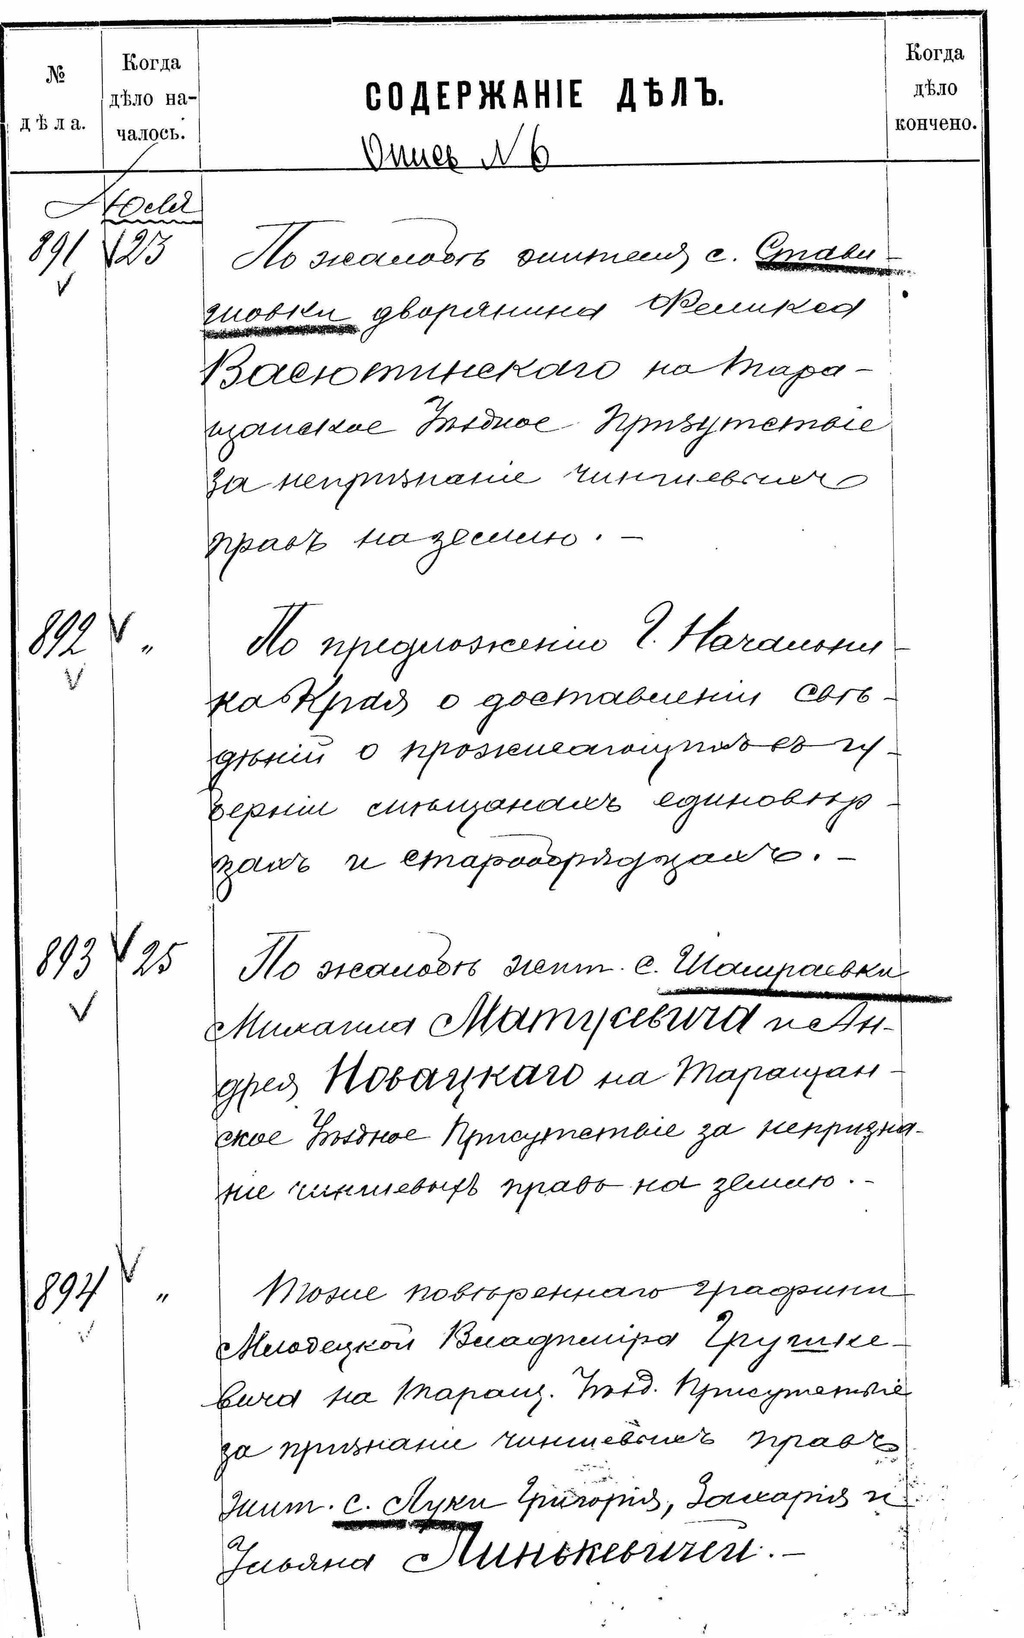 № дѣла.
Когда дѣло началось.
СОДЕРЖАНІЕ ДѢЛЪ.
Когда дѣло кончено.
Опись №6
Юля
891 23 По жалобѣ жителя с. Стави-
шовки дворянина Феликса
Васютинскаго на Тара-
щанское Уѣздное Присутствіе
за непризнаніе чиншевыхъ
правъ на землю. -
892 " По предложенію Г. Начальни-
ка Края о доставленіи свѣ-
дѣній о проживающихъ въ гу-
берніи мѣщанахъ единовѣр-
цахъ и старообрядцахъ. -
893 25 По жалобѣ жит. с. Шамраевки
Михаила Матусевича и Ан-
дрея Новацкаго на Таращан-
ское Уѣздное Присутствіе за непризна-
ніе чиншевыхъ правъ на землю. -
894 " Тоже повѣреннаго графини
Млодецкой Владиміра Грушке-
вича на Таращ. Уѣзд. Присутствіе
за признаніе чиншевыхъ правъ
жит. с. Луки Григорія, Захарія и
Ульяна Линькевичей. -